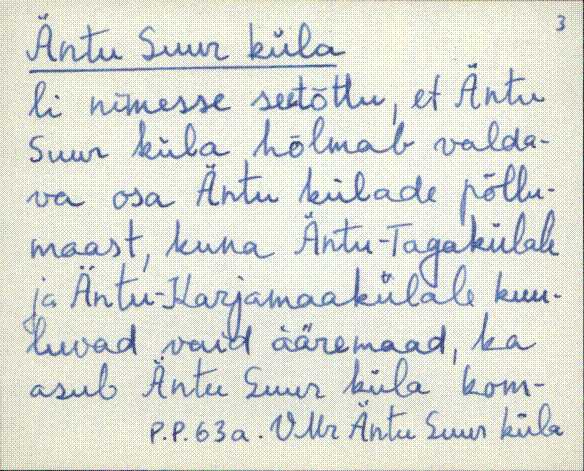 3
Äntu Suur küla
li nimesse seetõttu, et Äntu
Suur küla hõlmab valda-
va osa Äntu külade põllu-
maast, kuna Äntu-Tagakülale
ja Äntu-Karjamaakülale kuu-
luvad vaid ääremaad, ka
asub Äntu Suur küla kom-
P.P.63a. VMr Äntu Suur küla